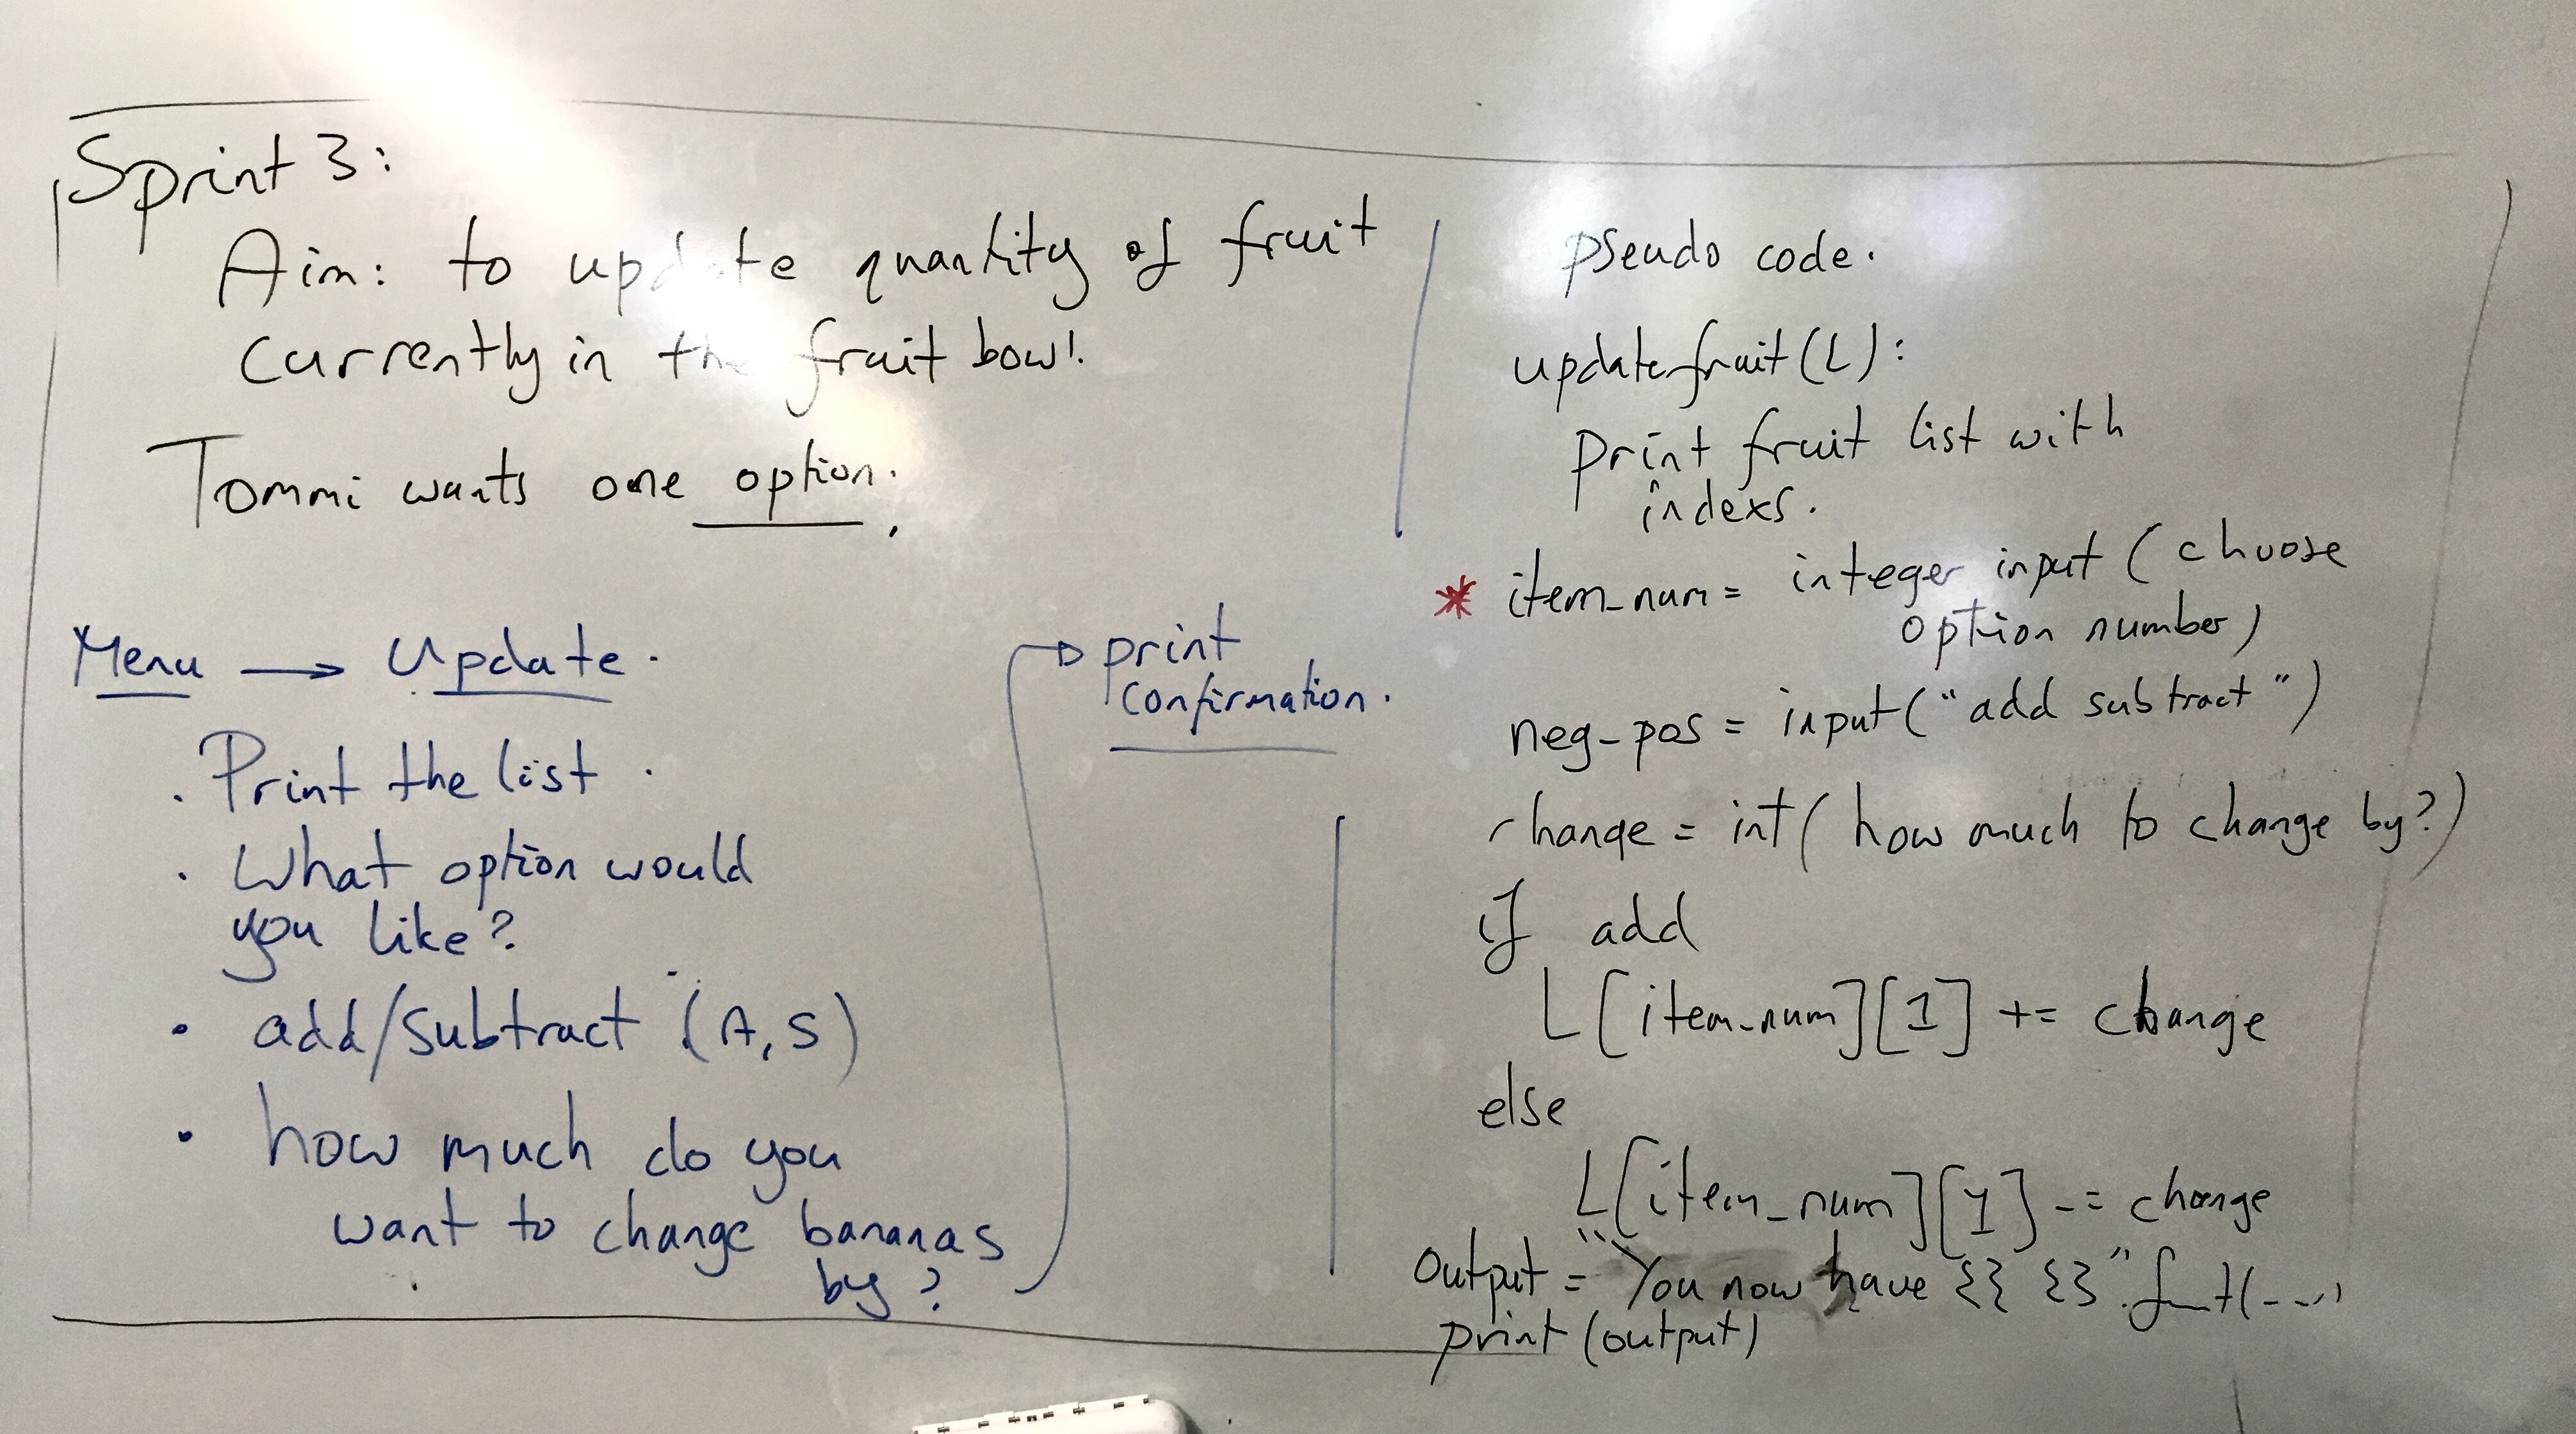 Sprint 3:
Aim: to update quantity of fruit
currently in the fruit bowl.
Tommi wants one option.
Menu → Update.
. Print the list.
. What option would
you like?
• add/subtract (A, S)
• how much do you
want to change bananas
by?
print
confirmation.
pseudo code.
updatefruit(L):
print fruit list with
indexs.
* item_num = integer input (choose
option number)
neg_pos = input("add subtract")
change = int( how much to change by?)
if add
L[item_num][1] += change
else
L[item_num][1] -= change
output = "You now have {} {}".
print(output)